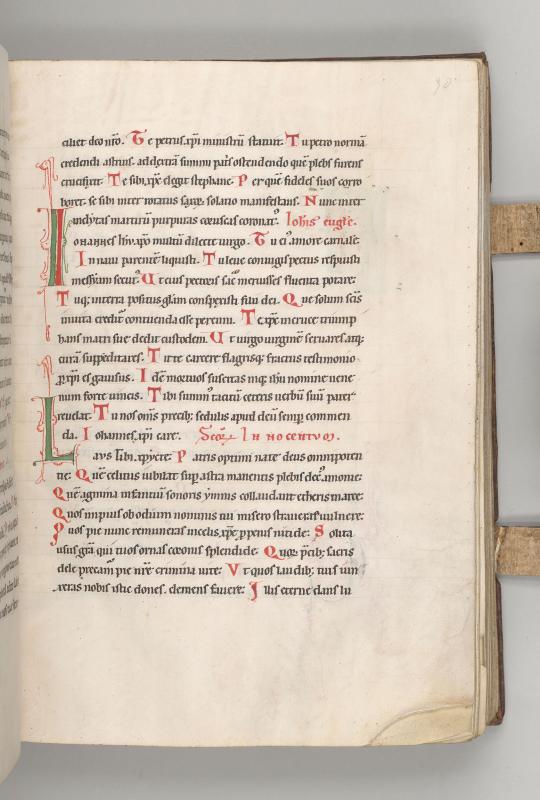 ciliet deo nr̄o. Te petrus xp̄i ministrū statuit. Tu petro normā
credendi astruis. ad dextrā summi patris ostendendo quē plebs furens
crucifixit. Te sibi xp̄e elegit stephane. Per quē fideles suos corro
boret. se sibi inter rotatus saxoꝝ solatio manifestans. Nunc inter
inclytas martirū purpuras coruscas coronat᷒. Iohis eugľe.
Iohannes ihv xpo multū dilecte uirgo. Tu ei᷒ amore carnalē.
In naui parentē liquisti. Tu leue coniugis pectus respuisti
messyam secut᷒. Ut eius pectoris sacra meruisses fluenta potare:
Tuq; in terra positus glām conspexisti filii dei. Que solum scīs
in uita credit᷒ contuenda esse perenni. Te xp̄c in cruce triump
hans matri sue dedit custodem. Ut uirgo uirginē seruares atq;
curā suppeditares. Tute carcere flagrisq; fractus testimonio
ꝓ xp̄i es gauisus. Idē mortuos suscitas inq; ihu nomine uene
num forte uincis. Tibi summ᷒ tacitū ceteris uerbū suū pater
reuelat. Tu nos om̄s precib; sedulis apud deū semp̄ commen
da. Iohannes xp̄i care. Seq̄. Innocentvm.
Lavs tibi xp̄e. Patris optimi nate deus omnipoten
tie: Quē celitus iubilat sup̄ astra manentis plebis dec᷒ armonie:
Quē agmina infantiū sonoris ymnis collaudant etheris in arce:
Quos impius ob odium nominis tui misero strauerat uulnere:
Quos pie nunc remuneras in celis xp̄e ꝓpenis nitide: Solita
usus gr̄a qui tuos ornas coronis splendide. Quoꝝ p̄cib; sacris
dele precam᷒ pie nr̄e crimina uite: Vt quos laudib; tuis iun
xeras nobis istic dones. demens fauere: Illis eterne dans lu